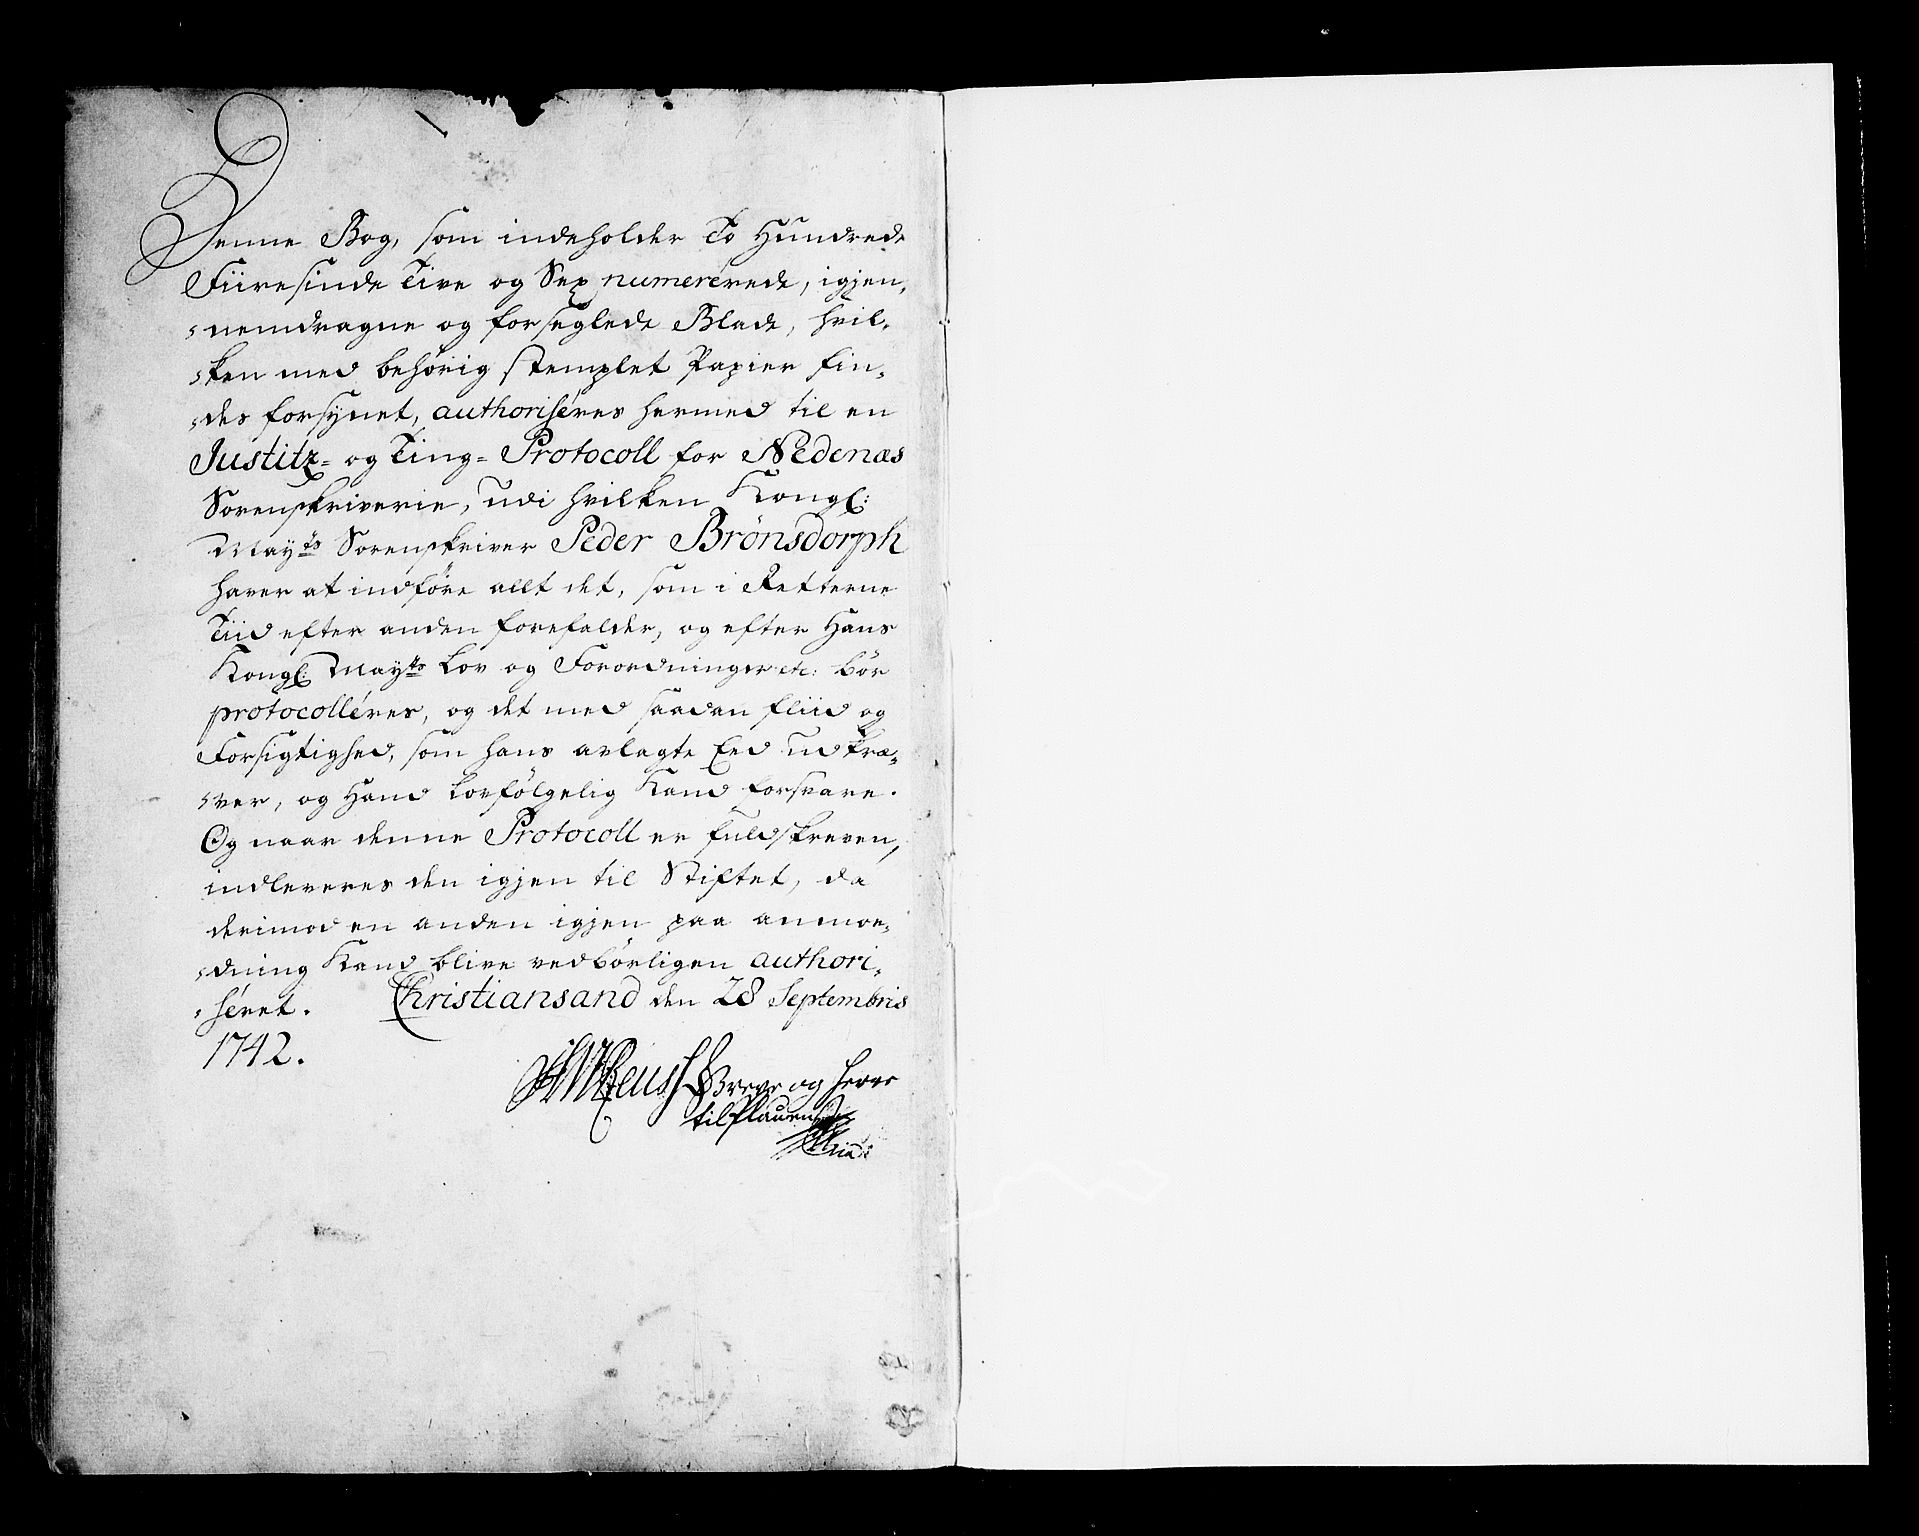 Denne Bog, som indeholder To Hundrede
Fiiresinde Tive og Sex numerérede, igjen-
nemdragne og forseglede Blade, hvil-
ken med behörig stemplet Papier fin-
des forsynet, authoriséres hermed til en
Justitz- og Ting- Protocoll for Nedenæs
Sorenskriverie, udi hvilken Kongl:
Mayts Sorenskriver Peder Brönsdorph
haver at indföre allt det, som i Retterne
Tiid efter anden forefalder, og efter Hans
Kongl: Mayts Lov og Forordninger etc: bör
protocolléres, og det med saadan fliid og
Forsigtighed, som hans avlagte Eed udkræ-
ver, og Hand Lovfölgelig Kand forsvare.
Og naar denne Protocoll er fuldskreven,
indleveres den igjen til Stiftet, da
derimod en anden igjen paa anmoe-
dning Kand blive vedbörligen authori-
séret. Christiansand den 28 Septembris
1742.
Reuss Greve og Herre
til Plauen